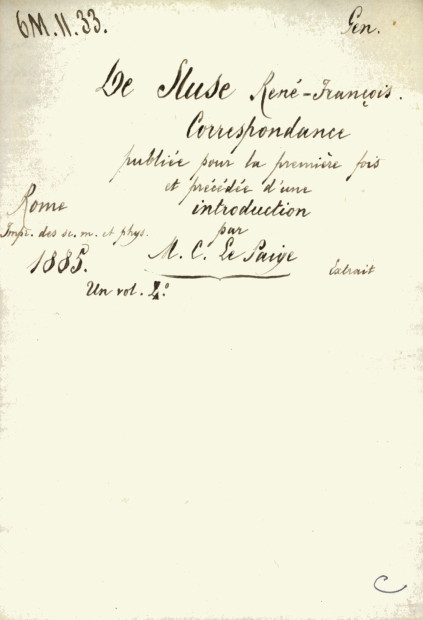 6M.11.33.
Gen.
De Sluse René-François.
Correspondance
publiée pour la première fois
et précédée d'une
introduction
par
M. C. Le Paige
Rome
Impr. des sc. m. et phys.
1885.
Extrait
Un vol. 4.°
C